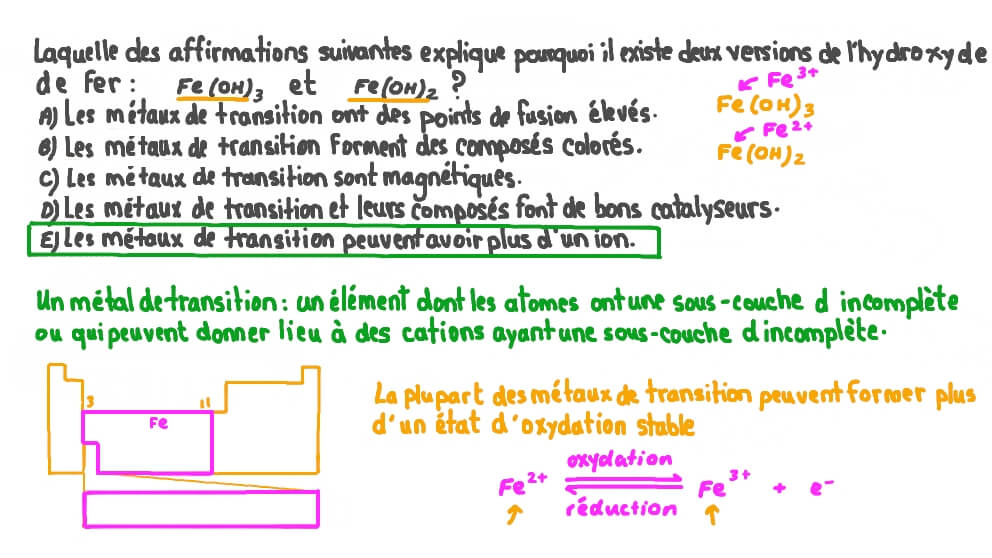 Laquelle des affirmations suivantes explique pourquoi il existe deux versions de l'hydroxyde
de fer : Fe(OH)₃ et Fe(OH)₂ ?
Fe³⁺
Fe(OH)₃
Fe²⁺
Fe(OH)₂
A) Les métaux de transition ont des points de fusion élevés.
B) Les métaux de transition forment des composés colorés.
C) Les métaux de transition sont magnétiques.
D) Les métaux de transition et leurs composés font de bons catalyseurs.
E) Les métaux de transition peuvent avoir plus d'un ion.
Un métal de transition : un élément dont les atomes ont une sous-couche d incomplète
ou qui peuvent donner lieu à des cations ayant une sous-couche d incomplète.
3 11
Fe
La plupart des métaux de transition peuvent former plus
d'un état d'oxydation stable
oxydation
Fe²⁺ ⇌ Fe³⁺ + e⁻
réduction